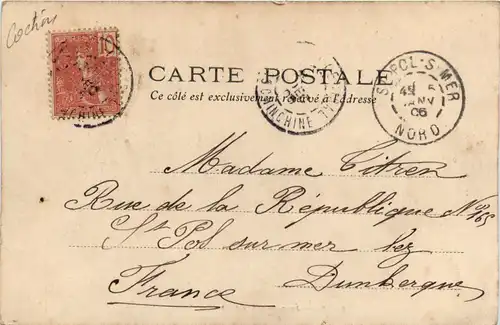 Cochin
10
CARTE POSTALE
Ce côté est exclusivement réservé à l'adresse
ST POL-S-MER
5
JANV
06
NORD
Madame Titren
Rue de la République No 165
St Pol sur mer lez
Dunkerque
France